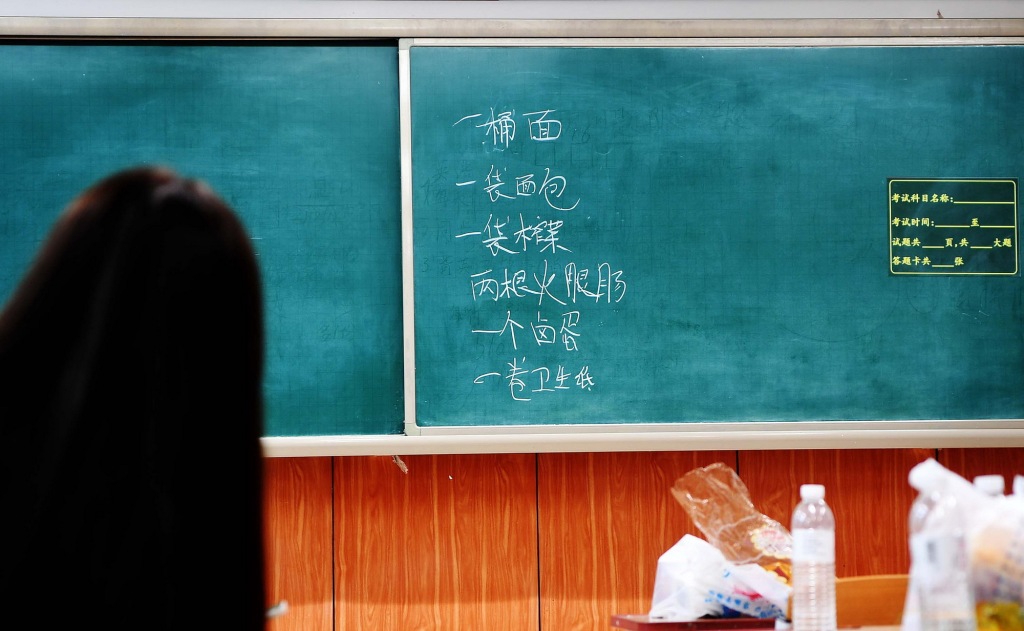 一桶面
一袋面包
一袋榨菜
两根火腿肠
一个卤蛋
一卷卫生纸
考试科目名称:
考试时间: 至
试题共 页,共 大题
答题卡共 张